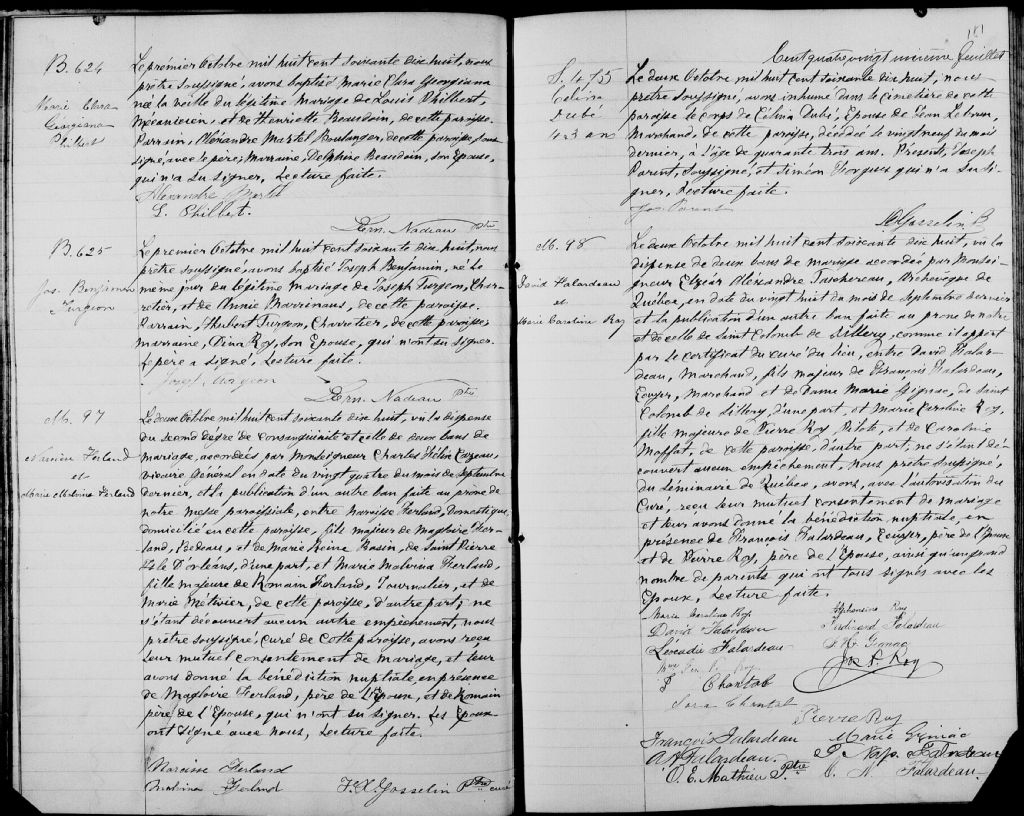 B. 624
Marie Clara
Georgiana
Philbert
Le premier Octobre mil huit cent soixante dix huit, nous
prêtre soussigné, avons baptisé Marie Clara Georgiana
née la veille du légitime mariage de Louis Philbert,
Mécanicien, et de Henriette Beaudoin, de cette paroisse.
Parrain, Alexandre Martel Boulanger, de cette paroisse, sous-
signé, avec le père; Marraine, Delphine Beaudoin, son Epouse,
qui n'a su signer. Lecture faite.
Alexandre Martel
L. Philbert.
Bern. Nadeau Ptre
B. 625
Jos. Benjamin
Turgeon
Le premier Octobre mil huit cent soixante dix huit, nous
prêtre soussigné, avons baptisé Joseph Benjamin, né le
même jour du légitime mariage de Joseph Turgeon, Char-
retier, et de Annie Marrinaus, de cette paroisse.
Parrain, Hubert Turgeon, Charretier, de cette paroisse,
marraine, Dina Roy, son Epouse, qui n'ont su signer.
Le père a signé. Lecture faite.
Joseph Turgeon
Bern. Nadeau Ptre
M. 97
Narcisse Ferland
et
Marie Malvina Ferland
Le deux Octobre mil huit cent soixante dix huit, vu la dispense
du second dégré de consanguinité et celle de deux bans de
mariage, accordées par Monseigneur Charles Félix Cazeau,
vicaire général en date du vingt quatre du mois de Septembre
dernier, et la publication d'un autre ban faite au prone de
notre messe paroissiale, entre Narcisse Ferland, Domestique,
domicilié en cette paroisse, fils majeur de Magloire Fer-
land, Bedeau, et de Marie Reine Rosin, de Saint Pierre
Isle D'orléans, d'une part, et Marie Malvina Ferland,
fille majeure de Romain Ferland, Journalier, et de
Marie Métivier, de cette paroisse, d'autre part; ne
s'étant découvert aucun autre empêchement, nous
prêtre soussigné, curé de cette paroisse, avons reçu
leur mutuel consentement de mariage, et leur
avons donné la bénédiction nuptiale, en présence
de Magloire Ferland, père de l'Epoux, et de Romain
père de l'Epouse, qui n'ont su signer. Les Epoux
ont signé avec nous, Lecture faite.
Narcisse Ferland
Malvina Ferland F. X. Gosselin Ptre curé
181
Cent quatre vingt unième feuillet
S. 475
Célina
Dubé
43 ans
Le deux Octobre mil huit cent soixante dix huit, nous
prêtre soussigné, avons inhumé dans le cimetière de cette
paroisse le corps de Célina Dubé, Epouse de Léon
Marchand, de cette paroisse, décédée le vingt neuf du mois
dernier, à l'âge de quarante trois ans. Présent, Joseph
Parent, soussigné, et Siméon qui n'a su si-
gner. Lecture faite.
Jos. Parent
Gosselin
M. 98
David Falardeau
et
Marie Caroline Roy
Le deux Octobre mil huit cent soixante dix huit, vu la
dispense de deux bans de mariage accordée par Monsei-
gneur Elzéar Alexandre Taschereau, Archevêque de
Québec, en date du vingt huit du mois de septembre dernier
et la publication d'un autre ban faite au prone de notre
et de celle de Saint Colomb de Sillery, comme il appert
par le certificat du curé du lieu, entre David Falar-
deau, Marchand, fils majeur de François Falardeau,
Ecuyer, Marchand et de Dame Marie Gignac, de Saint
Colomb de Sillery, d'une part, et Marie Caroline Roy,
fille majeure de Pierre Roy Pilote, et de Caroline
Moffat, de cette paroisse, d'autre part, ne s'étant dé-
couvert aucun empêchement, nous prêtre soussigné,
du séminaire de Québec, avons, avec l'autorisation du
Curé, reçu leur mutuel consentement de mariage
et leur avons donné la bénédiction nuptiale, en
présence de François Falardeau, Ecuyer, père de l'Epoux
et de Pierre Roy, père de l'Epouse, ainsi qu'un grand
nombre de parents qui ont tous signés avec les
Epoux. Lecture faite.
Marie Caroline Roy Alphonsine Roy
David Falardeau Ferdinand Falardeau
Léocadie Falardeau J. H. Gignac
Roy Jos. P. Roy
P Chantal
Sara Chantal
Pierre Roy
François Falardeau Marie Gignac
A. Falardeau. P. Nap. Falardeau
O. E. Mathieu Ptre. O. N. Falardeau.